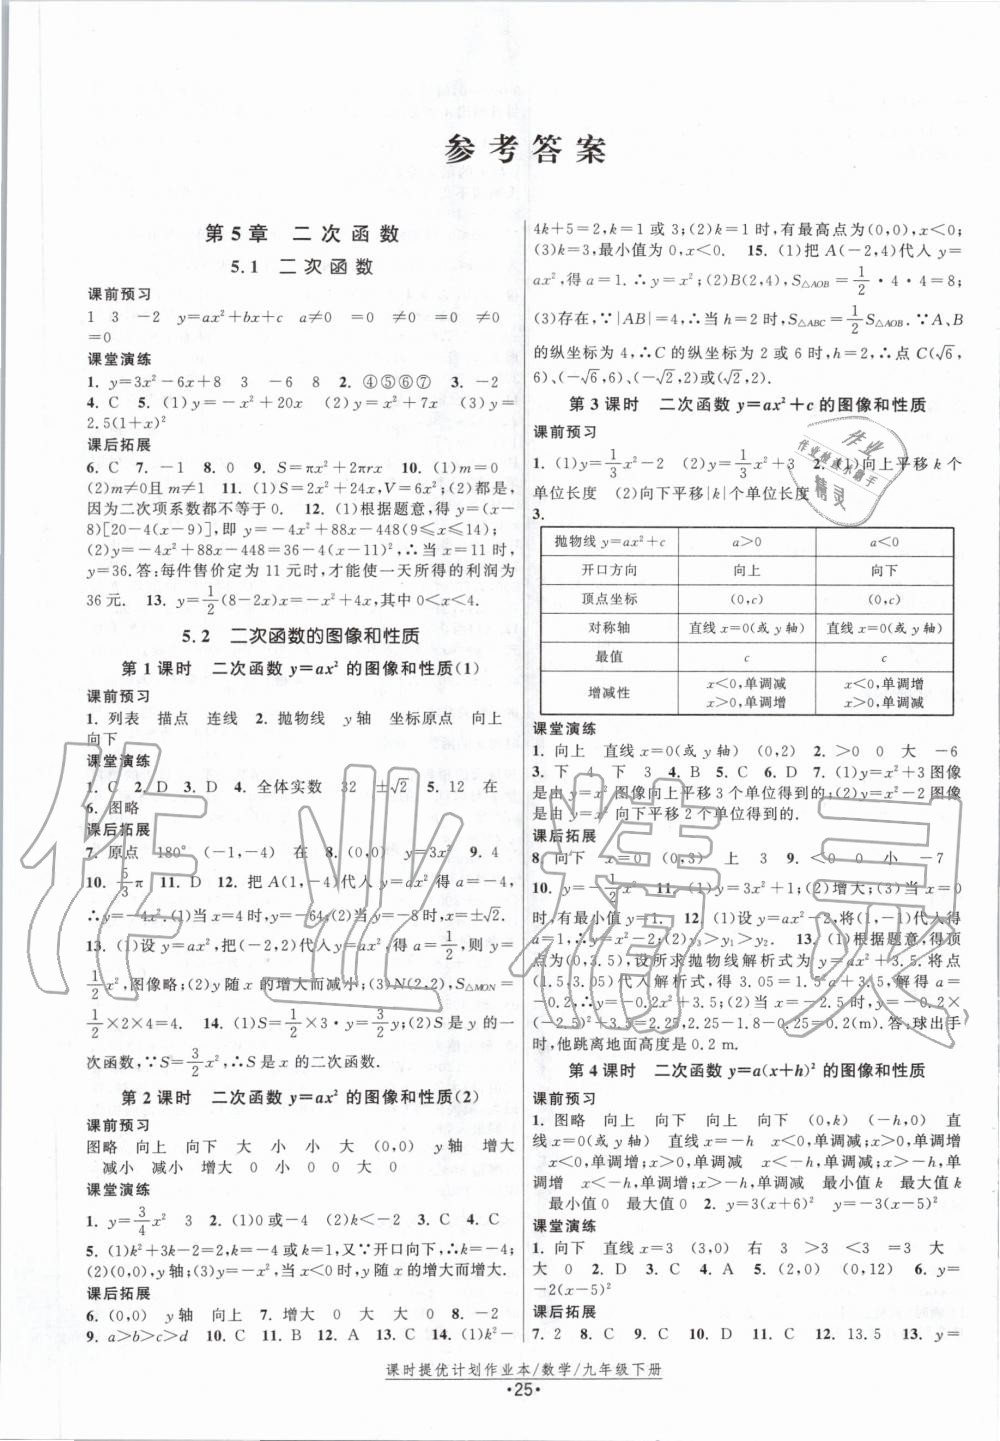 参考答案
第5章 二次函数
5.1 二次函数
课前预习
1 3 -2 y=ax²+bx+c a≠0 =0 ≠0 ≠0 =0
=0
课堂演练
1. y=3x²-6x+8 3 -6 8 2. ④⑤⑥⑦ 3. -2
4. C 5. (1)y=-x²+20x (2)y=x²+7x (3)y=
2.5(1+x)²
课后拓展
6. C 7. -1 8. 0 9. S=πx²+2πrx 10. (1)m=0
(2)m≠0且m≠1 11. (1)S=2x²+24x,V=6x²;(2)都是,
因为二次项系数都不等于0. 12. (1)根据题意,得y=(x-
8)[20-4(x-9)],即y=-4x²+88x-448(9≤x≤14);
(2)y=-4x²+88x-448=36-4(x-11)²,∴当x=11时,
y=36.答:每件售价定为11元时,才能使一天所得的利润为
36元. 13. y=1/2(8-2x)x=-x²+4x,其中0<x<4.
5.2 二次函数的图像和性质
第1课时 二次函数y=ax²的图像和性质(1)
课前预习
1. 列表 描点 连线 2. 抛物线 y轴 坐标原点 向上
向下
课堂演练
1. C 2. D 3. D 4. 全体实数 32 ±√2 5. 12 在
6. 图略
课后拓展
7. 原点 180° (-1,-4) 在 8. (0,0) y=3x² 9. 4
10. 5/3π 11. D 12. 把A(1,-4)代入y=ax²,得a=-4,
∴y=-4x².(1)当x=4时,y=-64;(2)当y=-8时,x=±√2.
13. (1)设y=ax²,把(-2,2)代入y=ax²,得a=1/2,则y=
1/2x²,图像略;(2)y随x的增大而减小;(3)N(2,2),S△MON=
1/2×2×4=4. 14. (1)S=1/2×3·y=3/2y;(2)S是y的一
次函数,∵S=3/2x²,∴S是x的二次函数.
第2课时 二次函数y=ax²的图像和性质(2)
课前预习
图略 向上 向下 大 小 小 大 (0,0) y轴 增大
减小 减小 增大 0 小 0 0 大 0
课堂演练
1. y=3/4x² 3 2. (1)0或-4 (2)k<-2 3. C 4. C
5. (1)k²+3k-2=2,∴k=-4或k=1,又∵开口向下,∴k=-4;
(2)(0,0),y轴;(3)y=-x²,∴当x<0时,y随x的增大而增大.
课后拓展
6. (0,0) y轴 向上 7. 增大 0 大 大 0 8. -2
9. a>b>c>d 10. C 11. B 12. A 13. C 14. (1)k²-
4k+5=2,k=1或3;(2)k=1时,有最高点为(0,0),x<0;
(3)k=3,最小值为0,x<0. 15. (1)把A(-2,4)代入y=
ax²,得a=1.∴y=x²;(2)B(2,4),S△AOB=1/2·4·4=8;
(3)存在,∵|AB|=4,∴当h=2时,S△ABC=1/2S△AOB.∵A、B
的纵坐标为4,∴C的纵坐标为2或6时,h=2,∴点C(√6,
6)、(-√6,6)、(-√2,2)或(√2,2).
第3课时 二次函数y=ax²+c的图像和性质
课前预习
1. (1)y=1/3x²-2 (2)y=1/3x²+2 2. (1)向上平移k个
单位长度 (2)向下平移|k|个单位长度
3.
抛物线y=ax²+c a>0 a<0
开口方向 向上 向下
顶点坐标 (0,c) (0,c)
对称轴 直线x=0(或y轴) 直线x=0(或y轴)
最值 c c
增减性 x<0,单调减 x>0,单调增 x<0,单调增 x>0,单调减
课堂演练
1. 向上 直线x=0(或y轴) (0,2) 2. >0 0 大 -6
3. 下 4 下 3 4. D 5. C 6. D 7. (1)y=x²+3图像
是由y=x²图像向上平移3个单位得到的;(2)y=x²-2图像
是由y=x²向下平移2个单位得到的.
课后拓展
8. 向下 x=0 (0,3) 上 3 9. <0 0 小 -7
10. y=-1/2x² 11. (1)y=3x²+1;(2)增大;(3)x=0
时,有最小值y=1. 12. (1)设y=ax²-2,将(1,-1)代入得
a=1,∴y=x²-2;(2)y₃>y₁>y₂. 13. (1)根据题意,得顶
点为(0,3.5),设所求抛物线解析式为y=ax²+3.5.将点
(1.5,3.05)代入解析式,得3.05=1.5²a+3.5,解得a=
-0.2,∴y=-0.2x²+3.5;(2)当x=-2.5时,y=-0.2×
(-2.5)²+3.5=2.25,2.25-1.8-0.25=0.2(m).答:球出手
时,他跳离地面高度是0.2m.
第4课时 二次函数y=a(x+h)²的图像和性质
课前预习
1. 图略 向上 向下 向上 向下 (0,k) (-h,0) 直
线x=0(或y轴) 直线x=-h x<0,单调减;x>0,单调增
x<0,单调增;x>0,单调减 x<-h,单调减;x>-h,单调增
x<-h,单调增;x>-h,单调减 最小值k 最大值k
最小值0 最大值0 2. y=3(x+6)² y=-3(x-5)²
课堂演练
1. 向下 直线x=3 (3,0) 右 3 >3 <3 =3 大
大 0 2. D 3. D 4. A 5. (2,0) (0,12) 6. y=
-2(x-5)²
课后拓展
7. 2 8. C 9. B 10. D 11. C 12. 13.5 13. y=
课时提优计划作业本/数学/九年级下册
·25·
作业精灵
作业
作业检查小助手
精灵